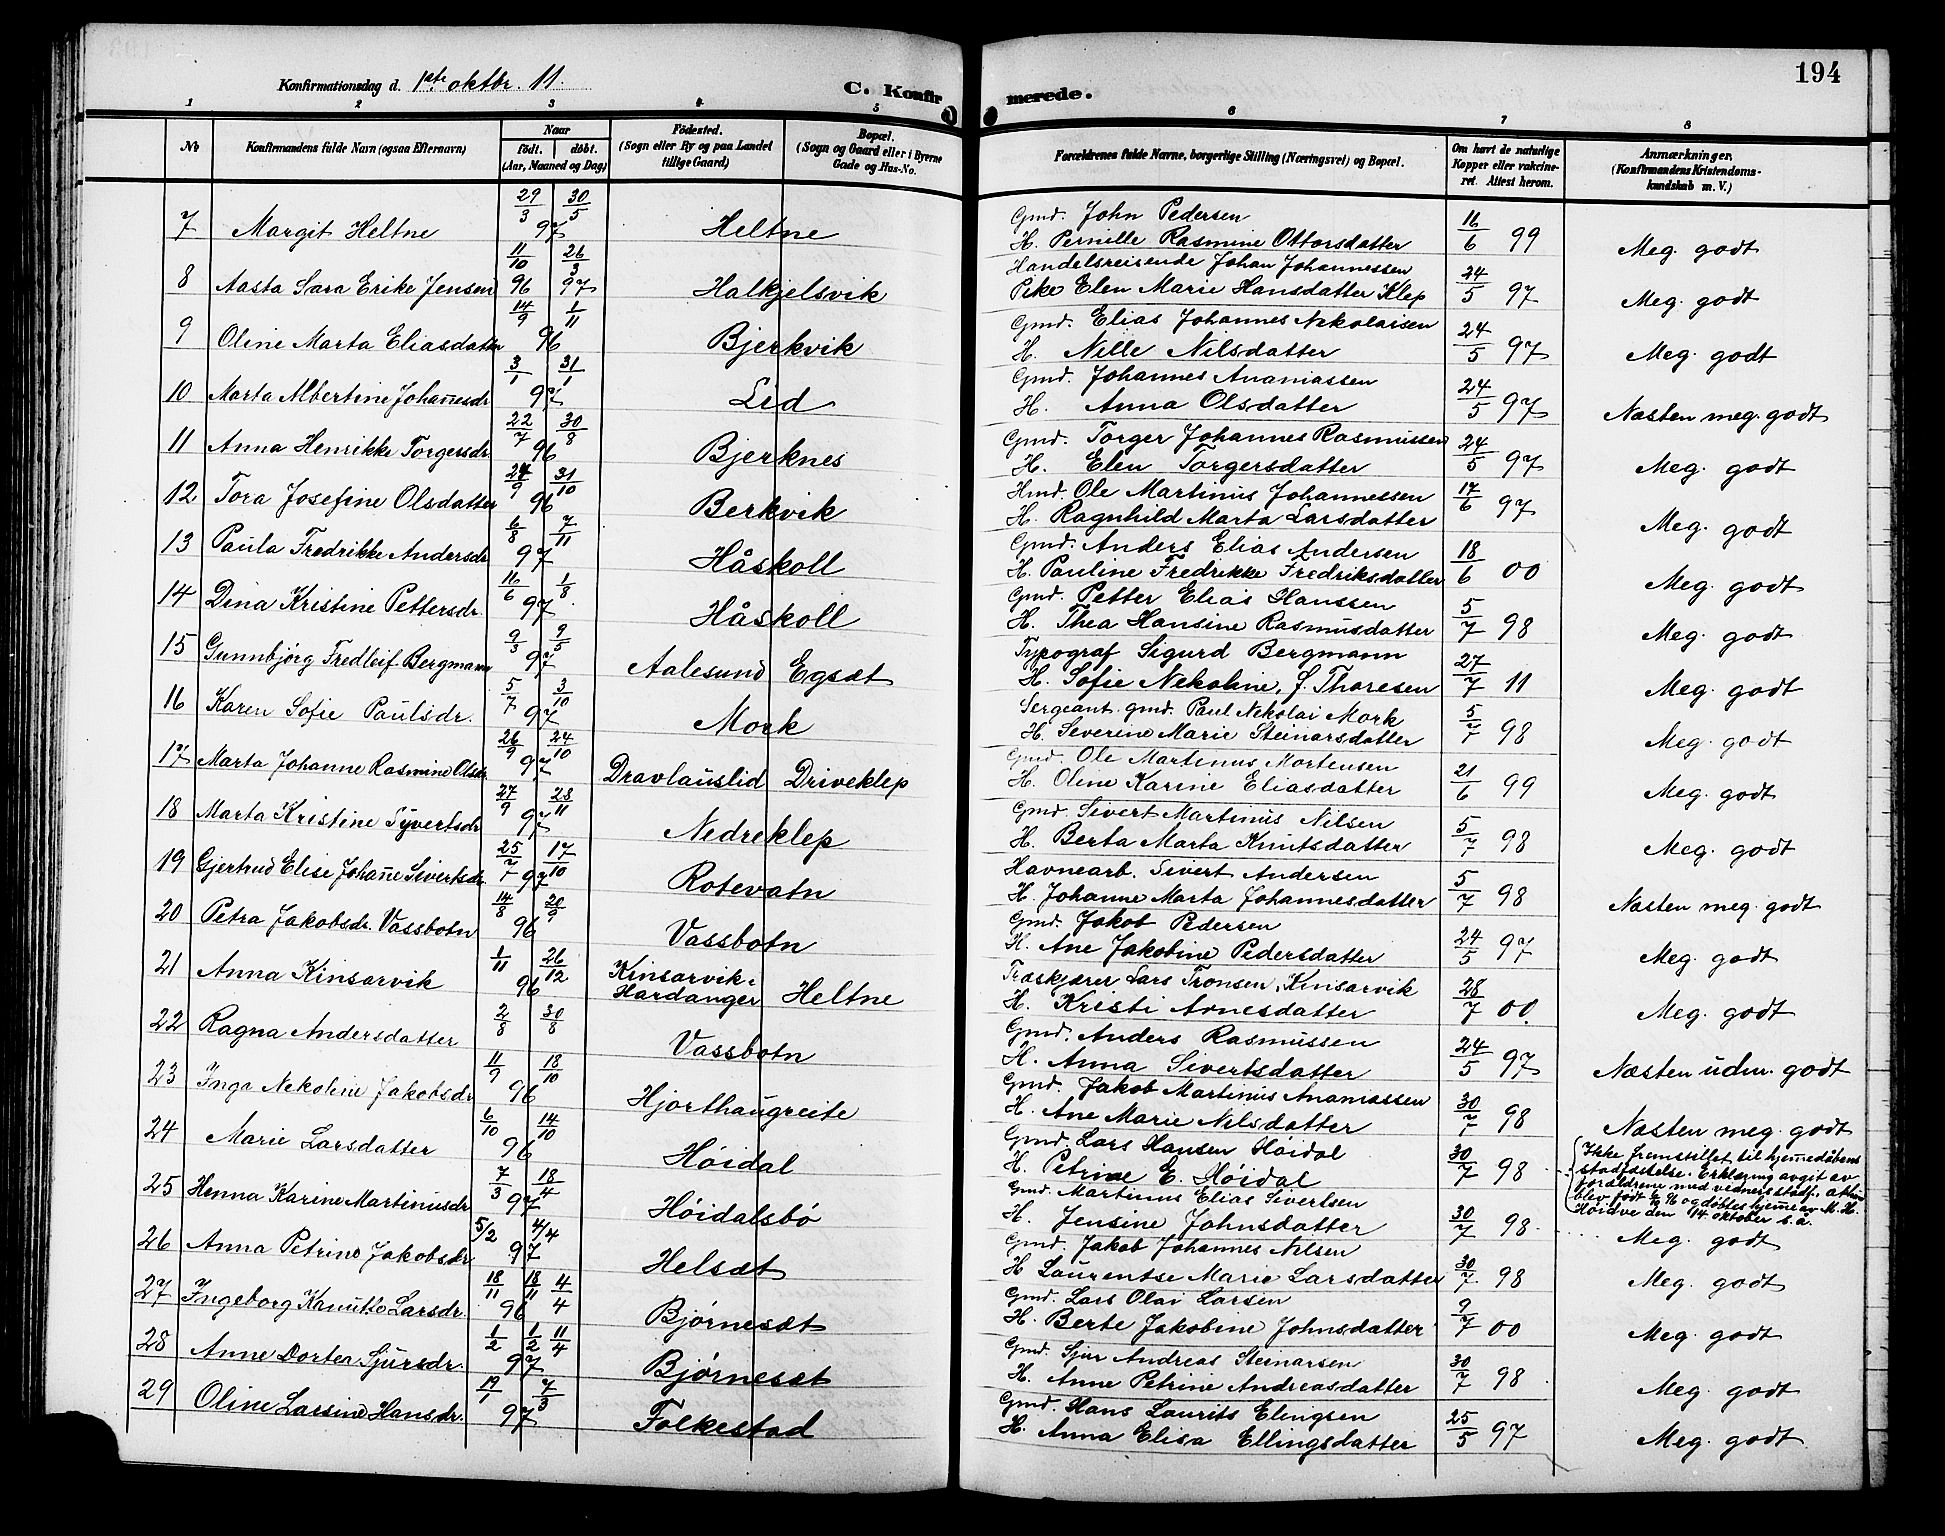 194
Konfirmationsdag d. 1ste oktbr. 11.
C. Konfirmerede.
1 2 3 4 5 6 7 8
No
Konfirmandens fulde Navn (ogsaa Efternavn)
Naar
født. døbt.
(Aar, Maaned og Dag)
Fødested.
(Sogn eller By og paa Landet
tillige Gaard)
Bopæl.
(Sogn og Gaard eller i Byerne
Gade og Hus-No.
Forældrenes fulde Navne, borgerlige Stilling (Næringsvei) og Bopæl.
Om havt de naturlige
Kopper eller vakcine-
ret. Attest herom.
Anmærkninger,
(Konfirmandens Kristendoms-
kundskab m. V.)
7 Margit Heltne 29/3 30/5 97 Heltne
Gmd. John Pedersen
H. Pernille Rasmine Ottorsdatter 16/6 99 Meg. godt
8 Aasta Sara Erike Jensen 11/10 96 26/3 97 Halkjelsvik
Handelsreisende Johan Johannessen
Pike Elen Marie Hansdatter Klep 24/5 97 Meg. godt
9 Oline Marta Eliasdatter 14/9 1/11 96 Bjerkvik
Gmd. Elias Johannes Nekolaisen
H. Nille Nilsdatter 24/5 97 Meg. godt
10 Marta Albertine Johañesdr 3/1 31/1 97 Lid
Gmd. Johannes Ananiassen
H. Anna Olsdatter 24/5 97 Næsten meg. godt
11 Anna Henrikke Torgersdr 22/7 30/8 96 Bjerknes
Gmd. Torger Johannes Rasmussen
H. Elen Torgersdatter 24/5 97 Meg. godt
12 Tora Josefine Olsdatter /9 31/10 96 Berkvik
Hmd. Ole Martinus Johannessen
H. Ragnhild Marta Larsdatter 17/6 97 Meg. godt
13 Paula Fredrikke Andersdr 6/8 7/11 97 Håskoll
Gmd. Anders Elias Andersen
H. Pauline Fredrikke Fredriksdatter 18/6 00 Meg. godt
14 Dina Kristine Pettersdr. 16/6 1/8 97 Håskoll
Gmd. Petter Elias Hanssen
H. Thea Hansine Rasmusdatter 5/7 98 Meg. godt
15 Gunnbjørg Fredleif Bergmann 9/3 9/5 97 Aalesund Egsæt
Typograf Sigurd Bergmann
H. Sofie Nekoline, f. Thoresen 27/7 11 Meg. godt
16 Karen Sofie Paulsdr. 5/7 3/10 97 Mork
Sergeant. gmd. Paul Nekolai Mork
H. Severine Marie Steinarsdatter 5/7 98 Meg. godt
17 Marta Johanne Rasmine Olsdr 26/9 24/10 97 Dravlauslid Driveklep
Gmd. Ole Martinus Mortensen
H. Oline Karine Eliasdatter 21/6 99 Meg. godt
18 Marta Kristine Syvertsdr 27/9 28/11 97 Nedreklep
Gmd. Sivert Martinus Nilsen
H. Berta Marta Knutsdatter 5/7 98 Meg. godt
19 Gjertrud Elise Johañe Sivertsdr. 25/7 17/10 97 Rotevatn
Havnearb. Sivert Andersen
H. Johanne Marta Johannesdatter 5/7 98 Næsten meg. godt
20 Petra Jakobsdr. Vassbotn 14/8 20/9 96 Vassbotn
Gmd. Jakob Pedersen
H. Ane Jakobine Pedersdatter 24/5 97 Meg. godt
21 Anna Kinsarvik 1/11 26/12 96 Kinsarvik,
Hardanger Heltne
Træskjærer Lars Tronsen Kinsarvik
H. Kristi Arnesdatter 28/7 00. Meg. godt
22 Ragna Andersdatter 2/8 30/8 Vassbotn
Gmd. Anders Rasmussen
H. Anna Sivertsdatter 24/5 97 Næsten udm. godt
23 Inga Nekoline Jakobsdr 11/9 18/10 96 Hjorthaugreite
Gmd. Jakob Martinus Ananiassen
H. Ane Marie Nilsdatter 30/7 98 Næsten meg. godt
24 Marie Larsdatter 6/10 14/10 96 Høidal
Gmd. Lars Hansen Høidal
H. Petrine E. Høidal 30/7 98
Ikke fremstillet til hjemmedåbens
stadfæstelse. Erklæring avgit av
forældrene med vidners stadf. at hun
blev født 6/10 96 og døbtes hjeme av M. H.
Høidve den 14. oktober s.a.
25 Henna Karine Martinusdr 7/3 18/4 97 Høidalsbø
Gmd. Martinus Elias Sivertsen
H. Jensine Johnsdatter 30/7 98 .... Meg. godt
26 Anna Petrine Jakobsdr 5/2 4/4 97 Helsæt
Gmd. Jakob Johannes Nilsen
H Laurentse Marie Larsdatter 30/7 98 Meg. godt
27 Ingeborg Kanutte Larsdr. 18/11 18/11 4/4 96 Bjørnesæt
Gmd. Lars Olai Larsen
H. Berte Jakobine Johnsdatter 9/7 00 Meg. godt
28 Anne Dortea Sjursdr. 1/2 1/2 11/4 97 Bjørnesæt
Gmd. Sjur Andreas Steinarsen
H. Anne Petrine Andreasdatter 30/7 98 Meg. godt
29 Oline Larsine Hansdr. 19/1 7/3 97 Folkestad
Gmd. Hans Laurits Elingsen
H. Anna Elisa Ellingsdatter 25/5 97 Meg. godt